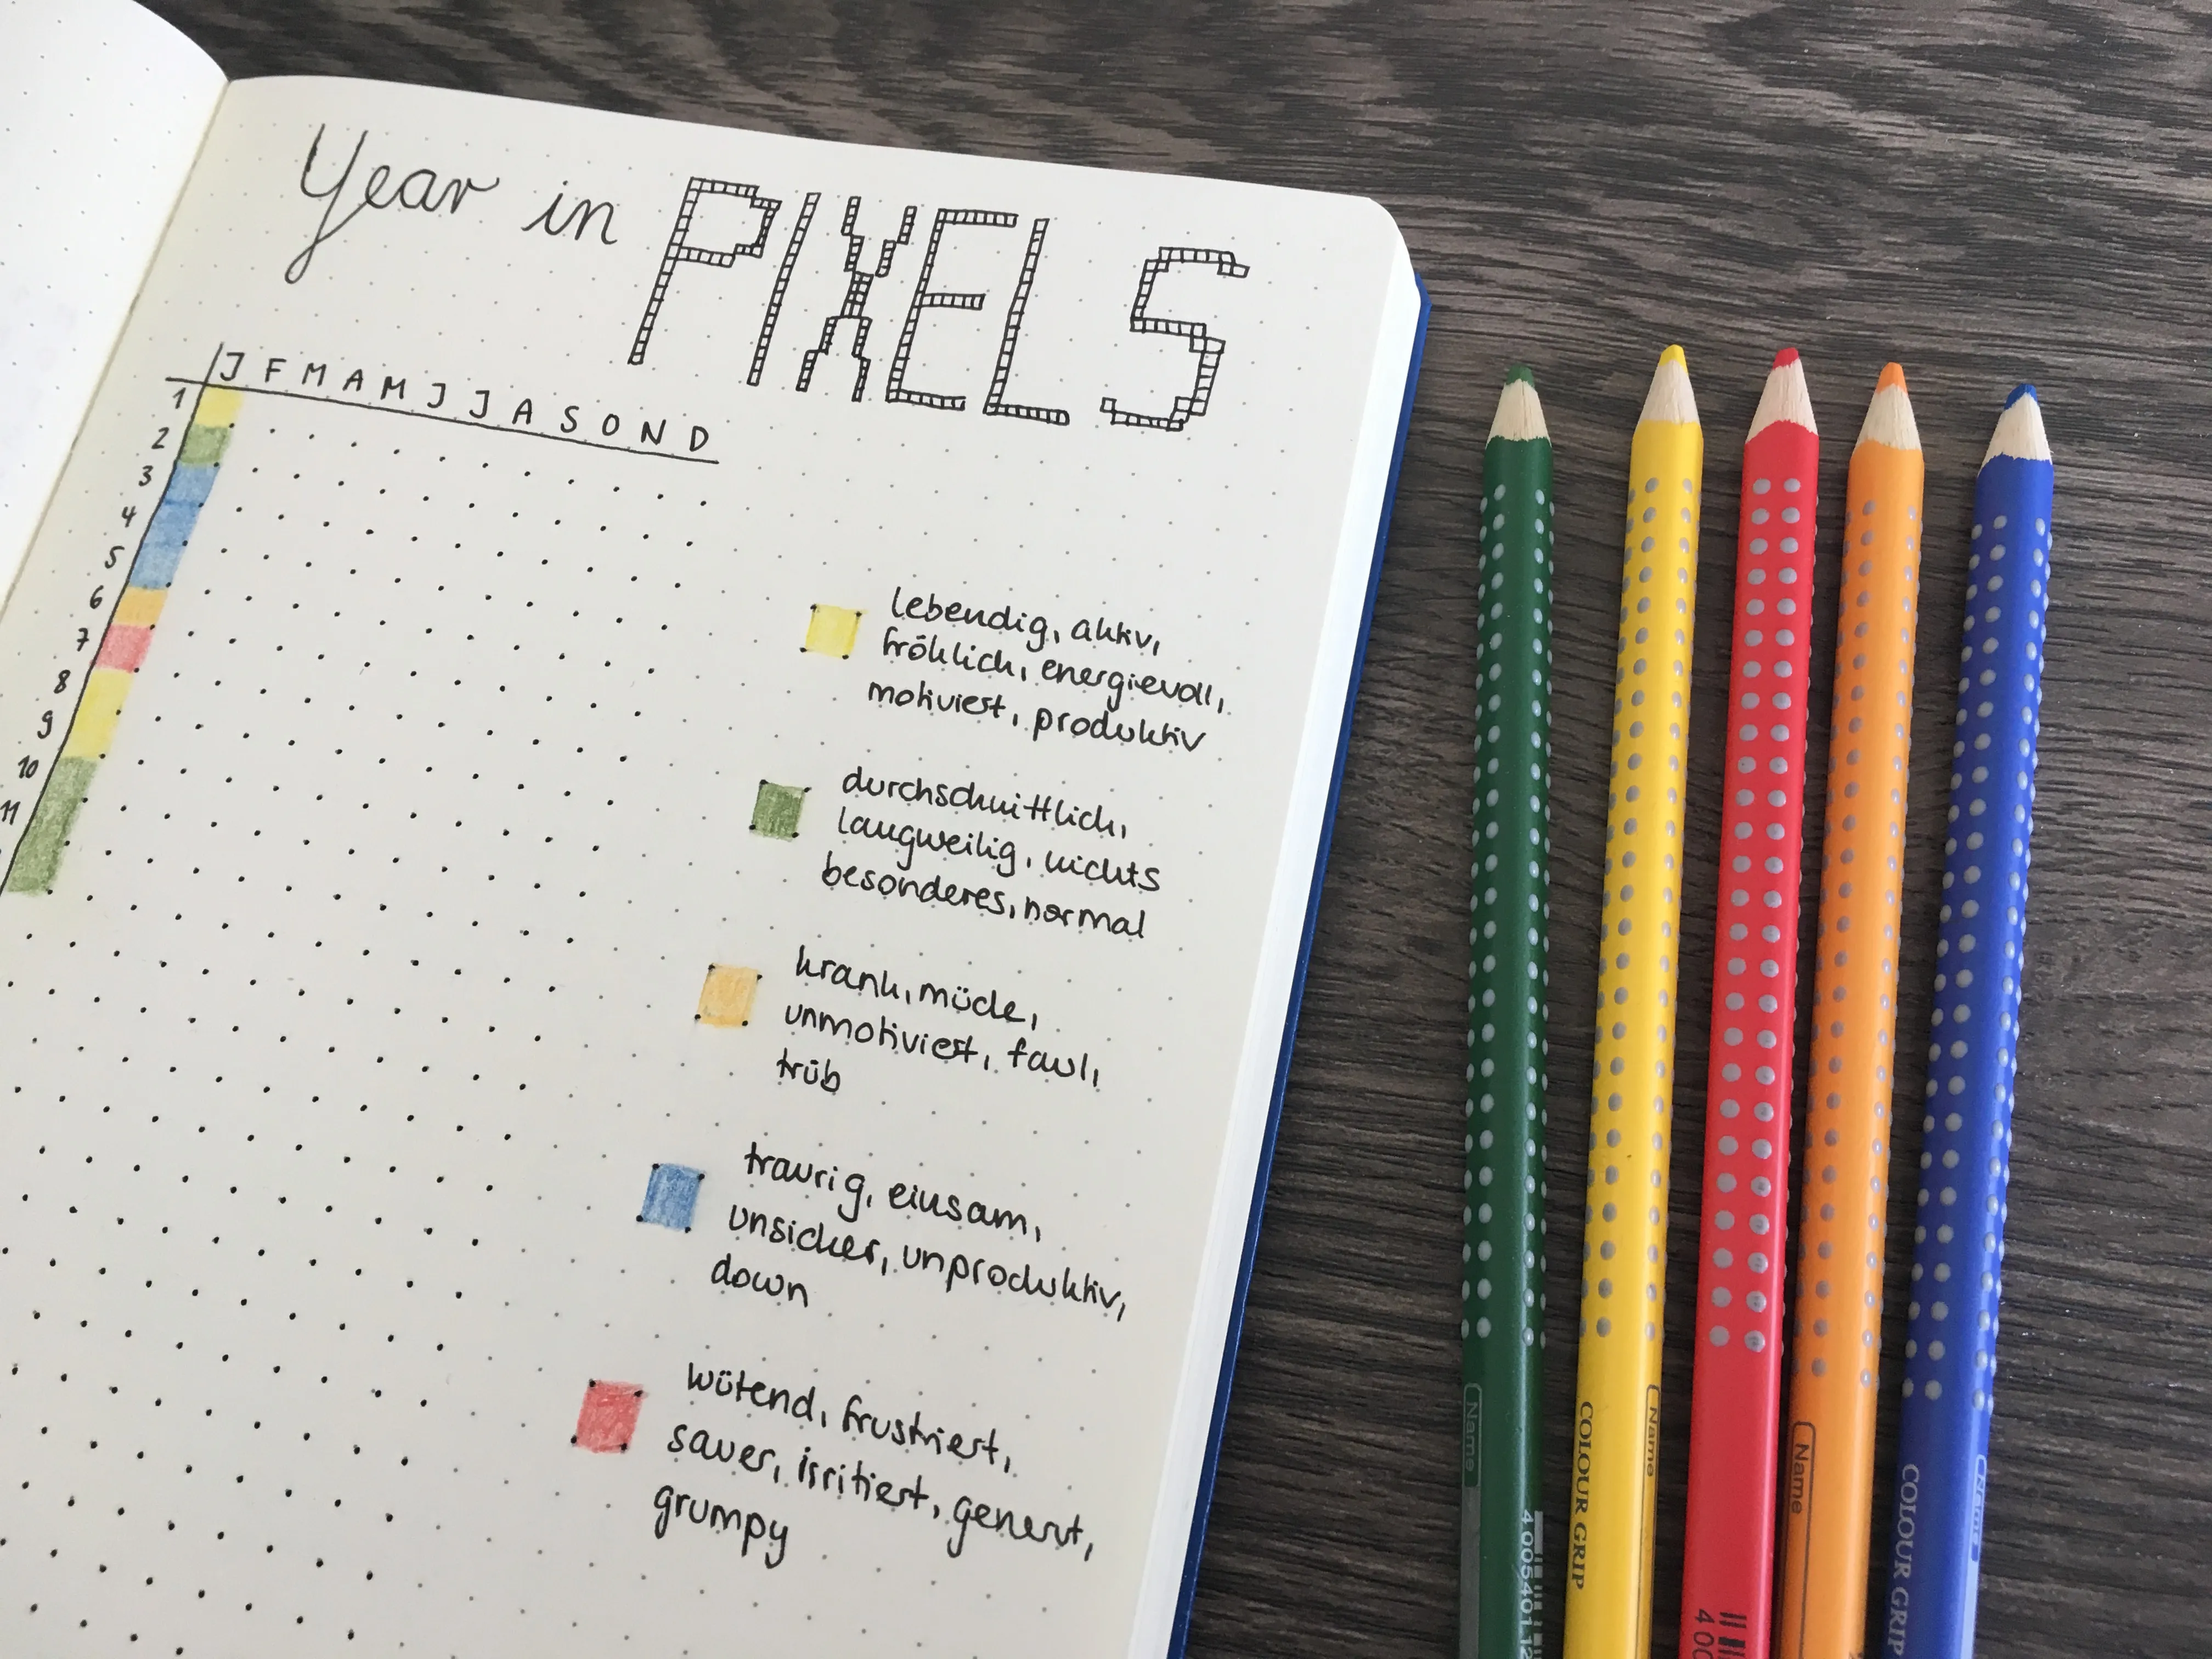 Year in PIXELS
J F M A M J J A S O N D
1
2
3
4
5
6
7
8
9
10
11
lebendig, aktiv,
fröhlich, energievoll,
motiviert, produktiv
durchschnittlich,
langweilig, nichts
besonderes, normal
krank, müde,
unmotiviert, faul,
trüb
traurig, einsam,
unsicher, unproduktiv,
down
wütend, frustriert,
sauer, irritiert, genervt,
grumpy
Name
4 005401 12
COLOUR GRIP
Name
4 00
Name
COLOUR GRIP
Name